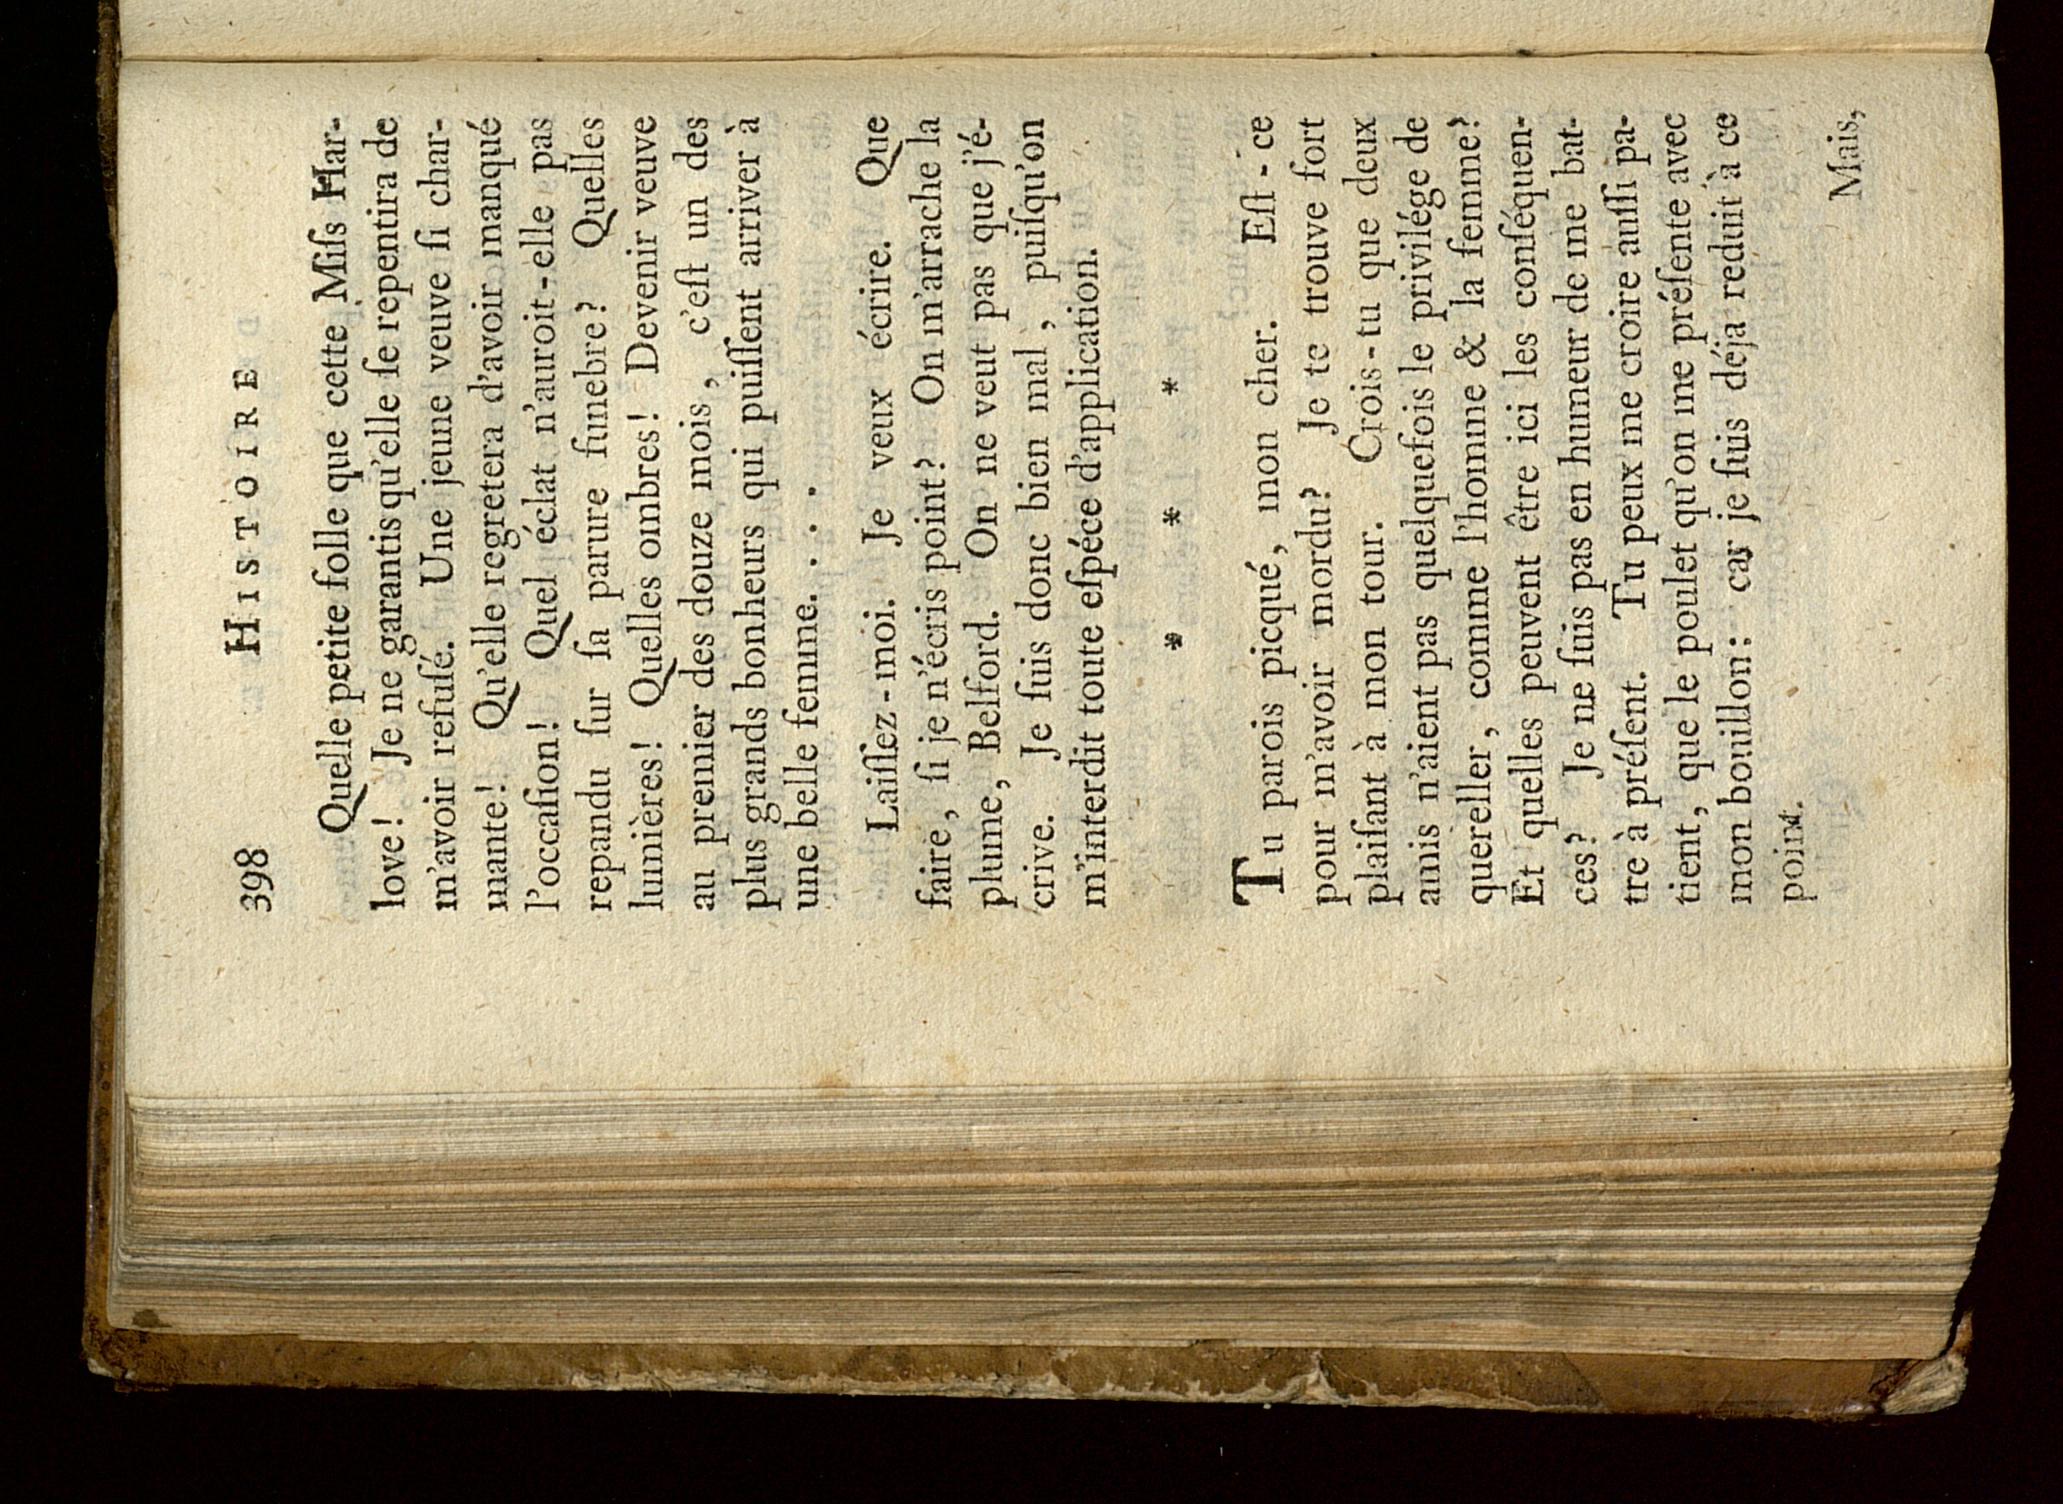 398 HISTOIRE
Quelle petite folle que cette Miſs Har-
love! Je ne garantis qu'elle ſe repentira de
m'avoir refuſé. Une jeune veuve ſi char-
mante! Qu'elle regretera d'avoir manqué
l'occaſion! Quel éclat n'auroit-elle pas
repandu ſur ſa parure funebre? Quelles
lumières! Quelles ombres! Devenir veuve
au premier des douze mois, c'eſt un des
plus grands bonheurs qui puiſſent arriver à
une belle femme. . . .
Laiſſez-moi. Je veux écrire. Que
faire, ſi je n'écris point? On m'arrache la
plume, Belford. On ne veut pas que j'é-
crive. Je ſuis donc bien mal, puiſqu'on
m'interdit toute eſpéce d'application.
* * *
Tu parois picqué, mon cher. Eſt-ce
pour m'avoir mordu? Je te trouve fort
plaiſant à mon tour. Crois-tu que deux
amis n'aient pas quelquefois le privilége de
quereller, comme l'homme & la femme?
Et quelles peuvent être ici les conſéquen-
ces? Je ne ſuis pas en humeur de me bat-
tre à préſent. Tu peux me croire auſſi pa-
tient, que le poulet qu'on me préſente avec
mon bouillon: car je ſuis déja reduit à ce
point.
Mais,